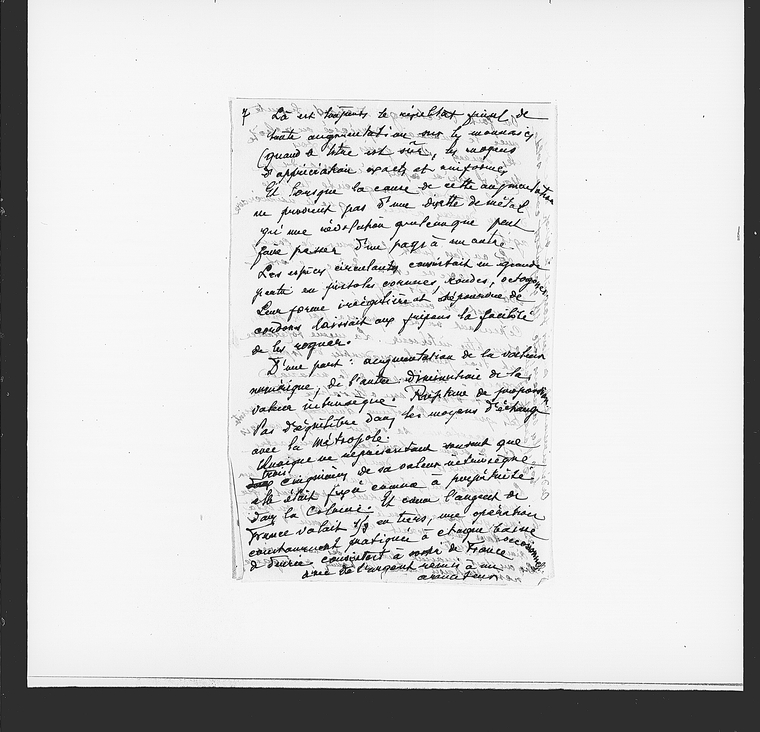 7 Là est toujours le résultat final de
toute augmentation sur les monnaies
(quand le titre est sûr, les moyens
d'appréciation exacts et uniformes
Et lorsque la cause de cette augmentation
ne provient pas d'une disette de métal
qu'une révolution quelconque peut
faire passer d'un pays à un autre.
Les espèces circulantes consistait en grande
partie en pistoles cornues, rondes, octogones
Leur forme irrégulière et dépourvue de
cordons laissait aux fripons la facilité
de les rogner.
D'une part: augmentation de la valeur
numérique, de l'autre: diminution de la
valeur intrinsèque. Rupture de proportion
Pas d'équilibre dans les moyens d'échange
avec la Métropole.
Quoique ne représentant souvent que
trois cinquièmes de sa valeur intrinsèque
elle était fixée comme à perpétuité
dans la Colonie. Et comme l'argent de
France valait 1/3 en tiers, une opération
constamment pratiquée à chaque baisse
de denrée consistait à venir de France
avec de l'argent remis à un
armateur